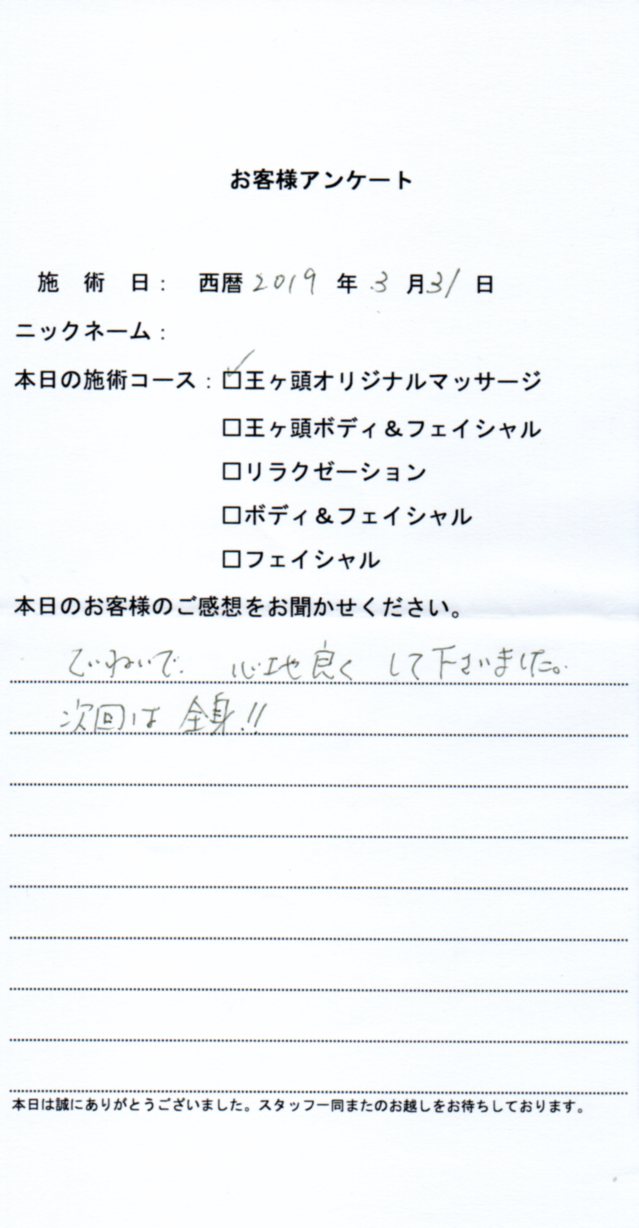 お客様アンケート
施 術 日： 西暦 2019 年 3 月 31 日
ニックネーム：
本日の施術コース：☑王ヶ頭オリジナルマッサージ
□王ヶ頭ボディ＆フェイシャル
□リラクゼーション
□ボディ＆フェイシャル
□フェイシャル
本日のお客様のご感想をお聞かせください。
ていねいで、心地良く して下さいました。
次回は 全身!!
本日は誠にありがとうございました。スタッフ一同またのお越しをお待ちしております。